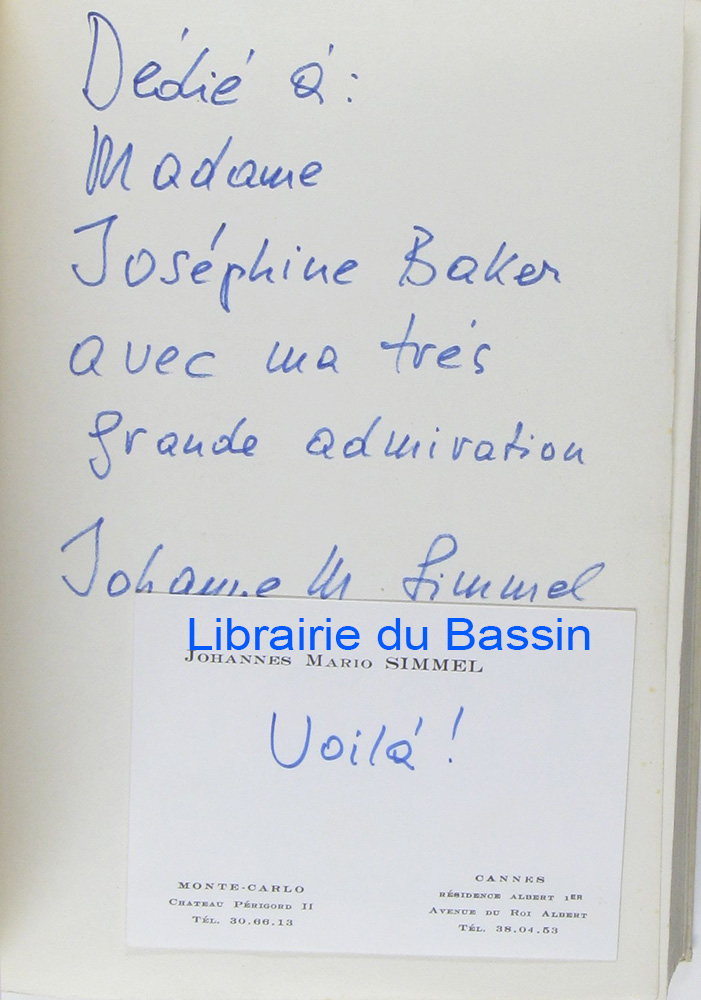 Dédié á:
Madame
Joséphine Baker
avec ma trés
grande admiration
Johannes M. Simmel
Librairie du Bassin
JOHANNES MARIO SIMMEL
Voilá!
MONTE-CARLO
CHATEAU PÉRIGORD II
TÉL. 30.66.13
CANNES
RÉSIDENCE ALBERT 1ER
AVENUE DU ROI ALBERT
TÉL. 38.04.53